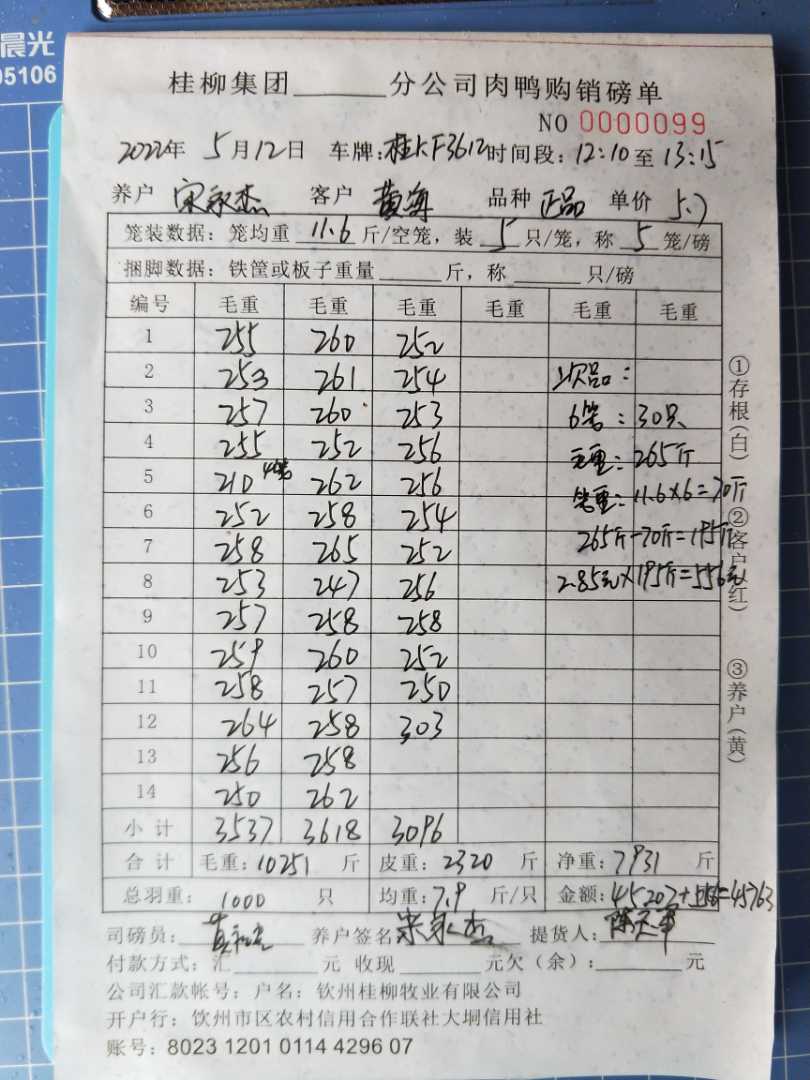 晨光
05106
桂柳集团______分公司肉鸭购销磅单
NO 0000099
2022年 5月12日 车牌:桂KF3612 时间段:12:10至13:15
养户 宋家杰 客户 黄海 品种 正品 单价 5.7
笼装数据:笼均重 11.6 斤/空笼,装 5 只/笼,称 5 笼/磅
捆脚数据:铁筐或板子重量______斤,称______只/磅
编号 毛重 毛重 毛重 毛重 毛重 毛重
1 255 260 252
2 253 261 254 次品:
3 257 260 253 6笼:30只
4 255 252 256 毛重:265斤
5 210 4笼 262 256 笼重:11.6×6=70斤
6 252 258 254
7 258 265 252 265斤-70斤=195斤
8 253 247 256 2.85元×195斤=556元
9 257 258 258
10 259 260 252
11 258 257 250
12 264 258 303
13 256 258
14 250 262
小计 3537 3618 3096
合计 毛重:10251 斤 皮重:2320 斤 净重:7931 斤
总羽重: 1000 只 均重:7.9 斤/只 金额:45207+556=45763
司磅员: 养户签名 宋家杰 提货人:
付款方式:汇______元 收现______元欠(余):______元
公司汇款帐号:户名:钦州桂柳牧业有限公司
开户行:钦州市区农村信用合作联社大垌信用社
账号:8023 1201 0114 4296 07
①存根(白)
②客户(红)
③养户(黄)